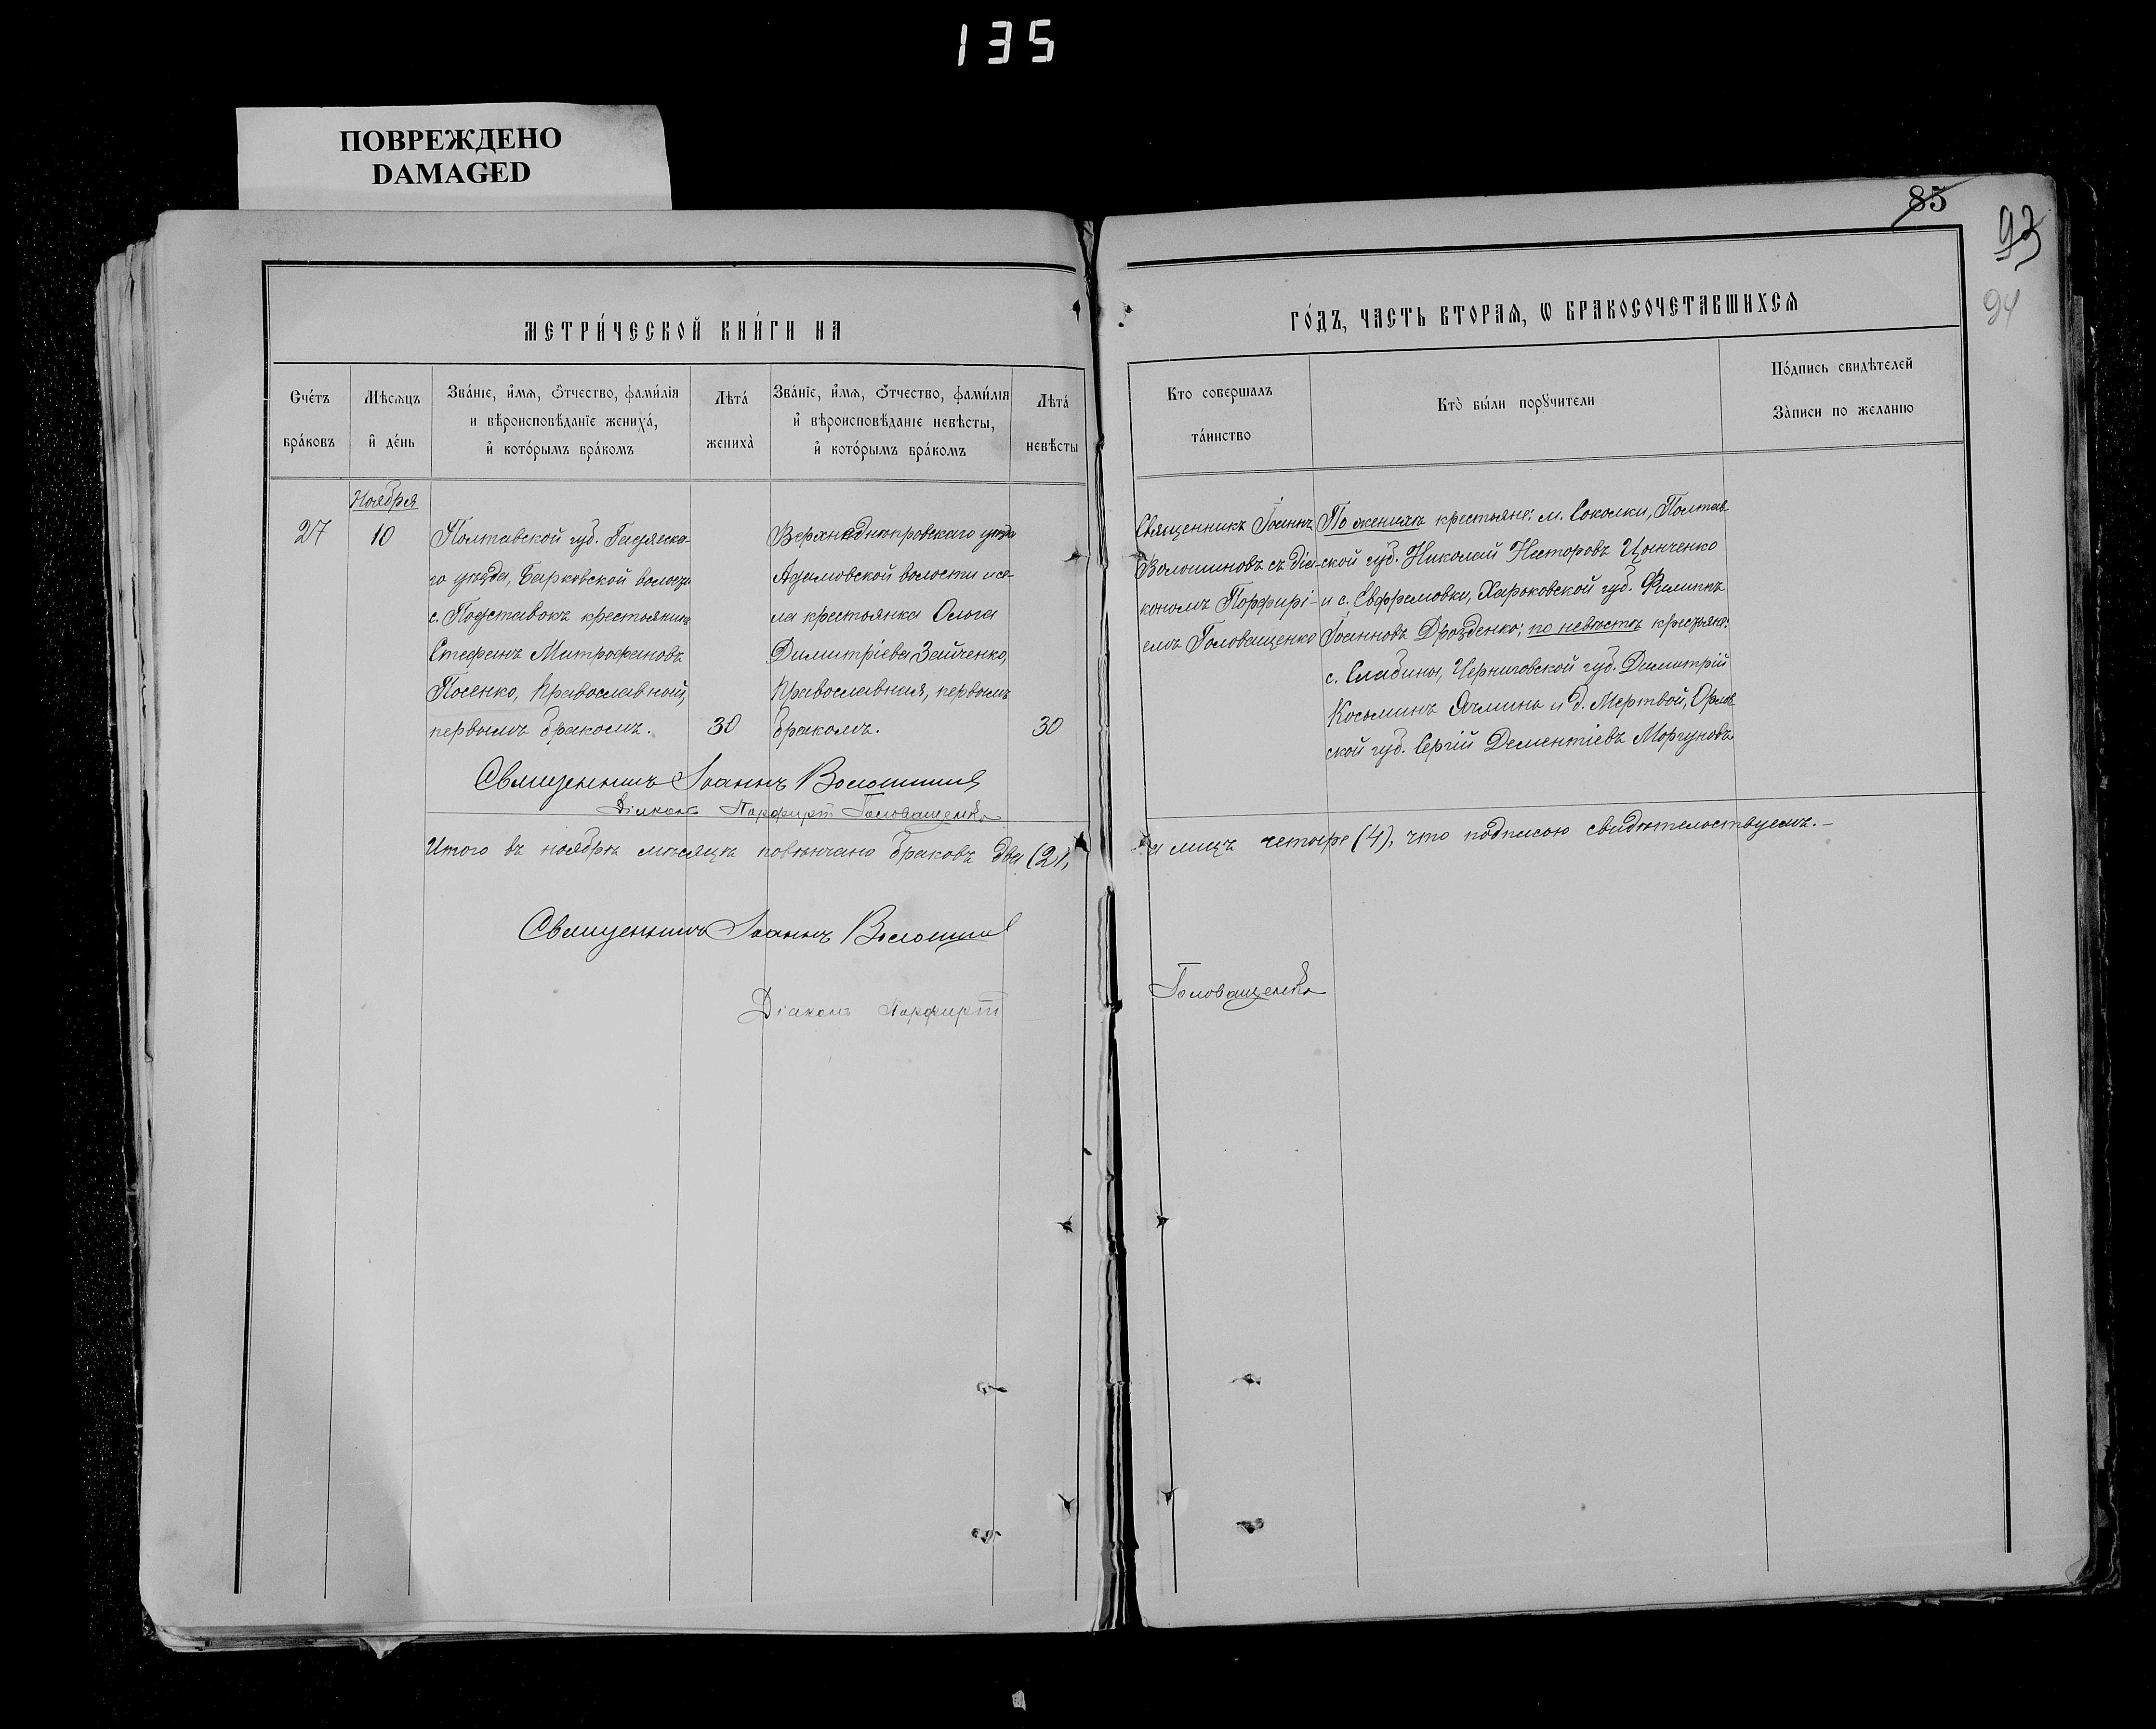 135
ПОВРЕЖДЕНО
DAMAGED
85
93
94
МЕТРИ́ЧЕСКОЙ КНИ́ГИ НА
ГО́ДЪ, ЧАСТЬ ВТОРАѦ, Ѡ БРАКОСОЧЕТАВШИХСѦ
Сче́тъ бра́ковъ
Мѣсѧцъ и҆ де́нь
Зва́нїе, и҆́мѧ, ѻ҆́тчество, фами́лїѧ
и вѣроисповѣ́данїе жениха́,
и҆ кото́рымъ бра́комъ
Лѣта́ жениха̀
Зва́нїе, и҆́мѧ, ѻ҆́тчество, фами́лїѧ
и҆ вѣроисповѣ́данїе невѣ́сты,
и҆ кото́рымъ бра́комъ
Лѣта́ невѣ́сты
Кто совершалъ
та́инство
Кто̀ бы́ли порꙋчители
По́дпись свидѣ́телей
За̀писи по жела́нію
Ноября
27
10
Полтавской губ. Гадяска-
го уѣзда, Барковской волости
с. Подставокъ крестьянинъ
Стефанъ Митрофановъ
Носенко, православный,
первымъ бракомъ.
30
Верхнеднѣпровскаго уѣзда
Адамовской волости и се-
ла крестьянка Ольга
Димитріева Зайченко,
православная, первымъ
бракомъ.
30
Священникъ Іоаннъ
Волошиновъ съ діа-
кономъ Порфирі-
емъ Головащенко
По женихѣ крестьяне: м. Соколки, Полтав-
ской губ. Николай Несторовъ Цынченко
и с. Евфремовки, Харьковской губ. Филиппъ
Іоанновъ Дрозденко; по невѣстѣ крестьяне:
с. Слабина, Черниговской губ. Димитрій
Косьминъ Ячмина и д. Мертвой, Орлов-
ской губ. Сергій Дементіевъ Моргуновъ
Священникъ Іоаннъ Волошинов
Діаконъ Порфирій Головащенко
Итого въ ноябрѣ мѣсяцѣ повѣнчано браковъ два (2),
а лицъ четыре (4), что подписью свидѣтельствуемъ. –
Священникъ Іоаннъ Волошинов
Діаконъ Порфирій
Головащенко